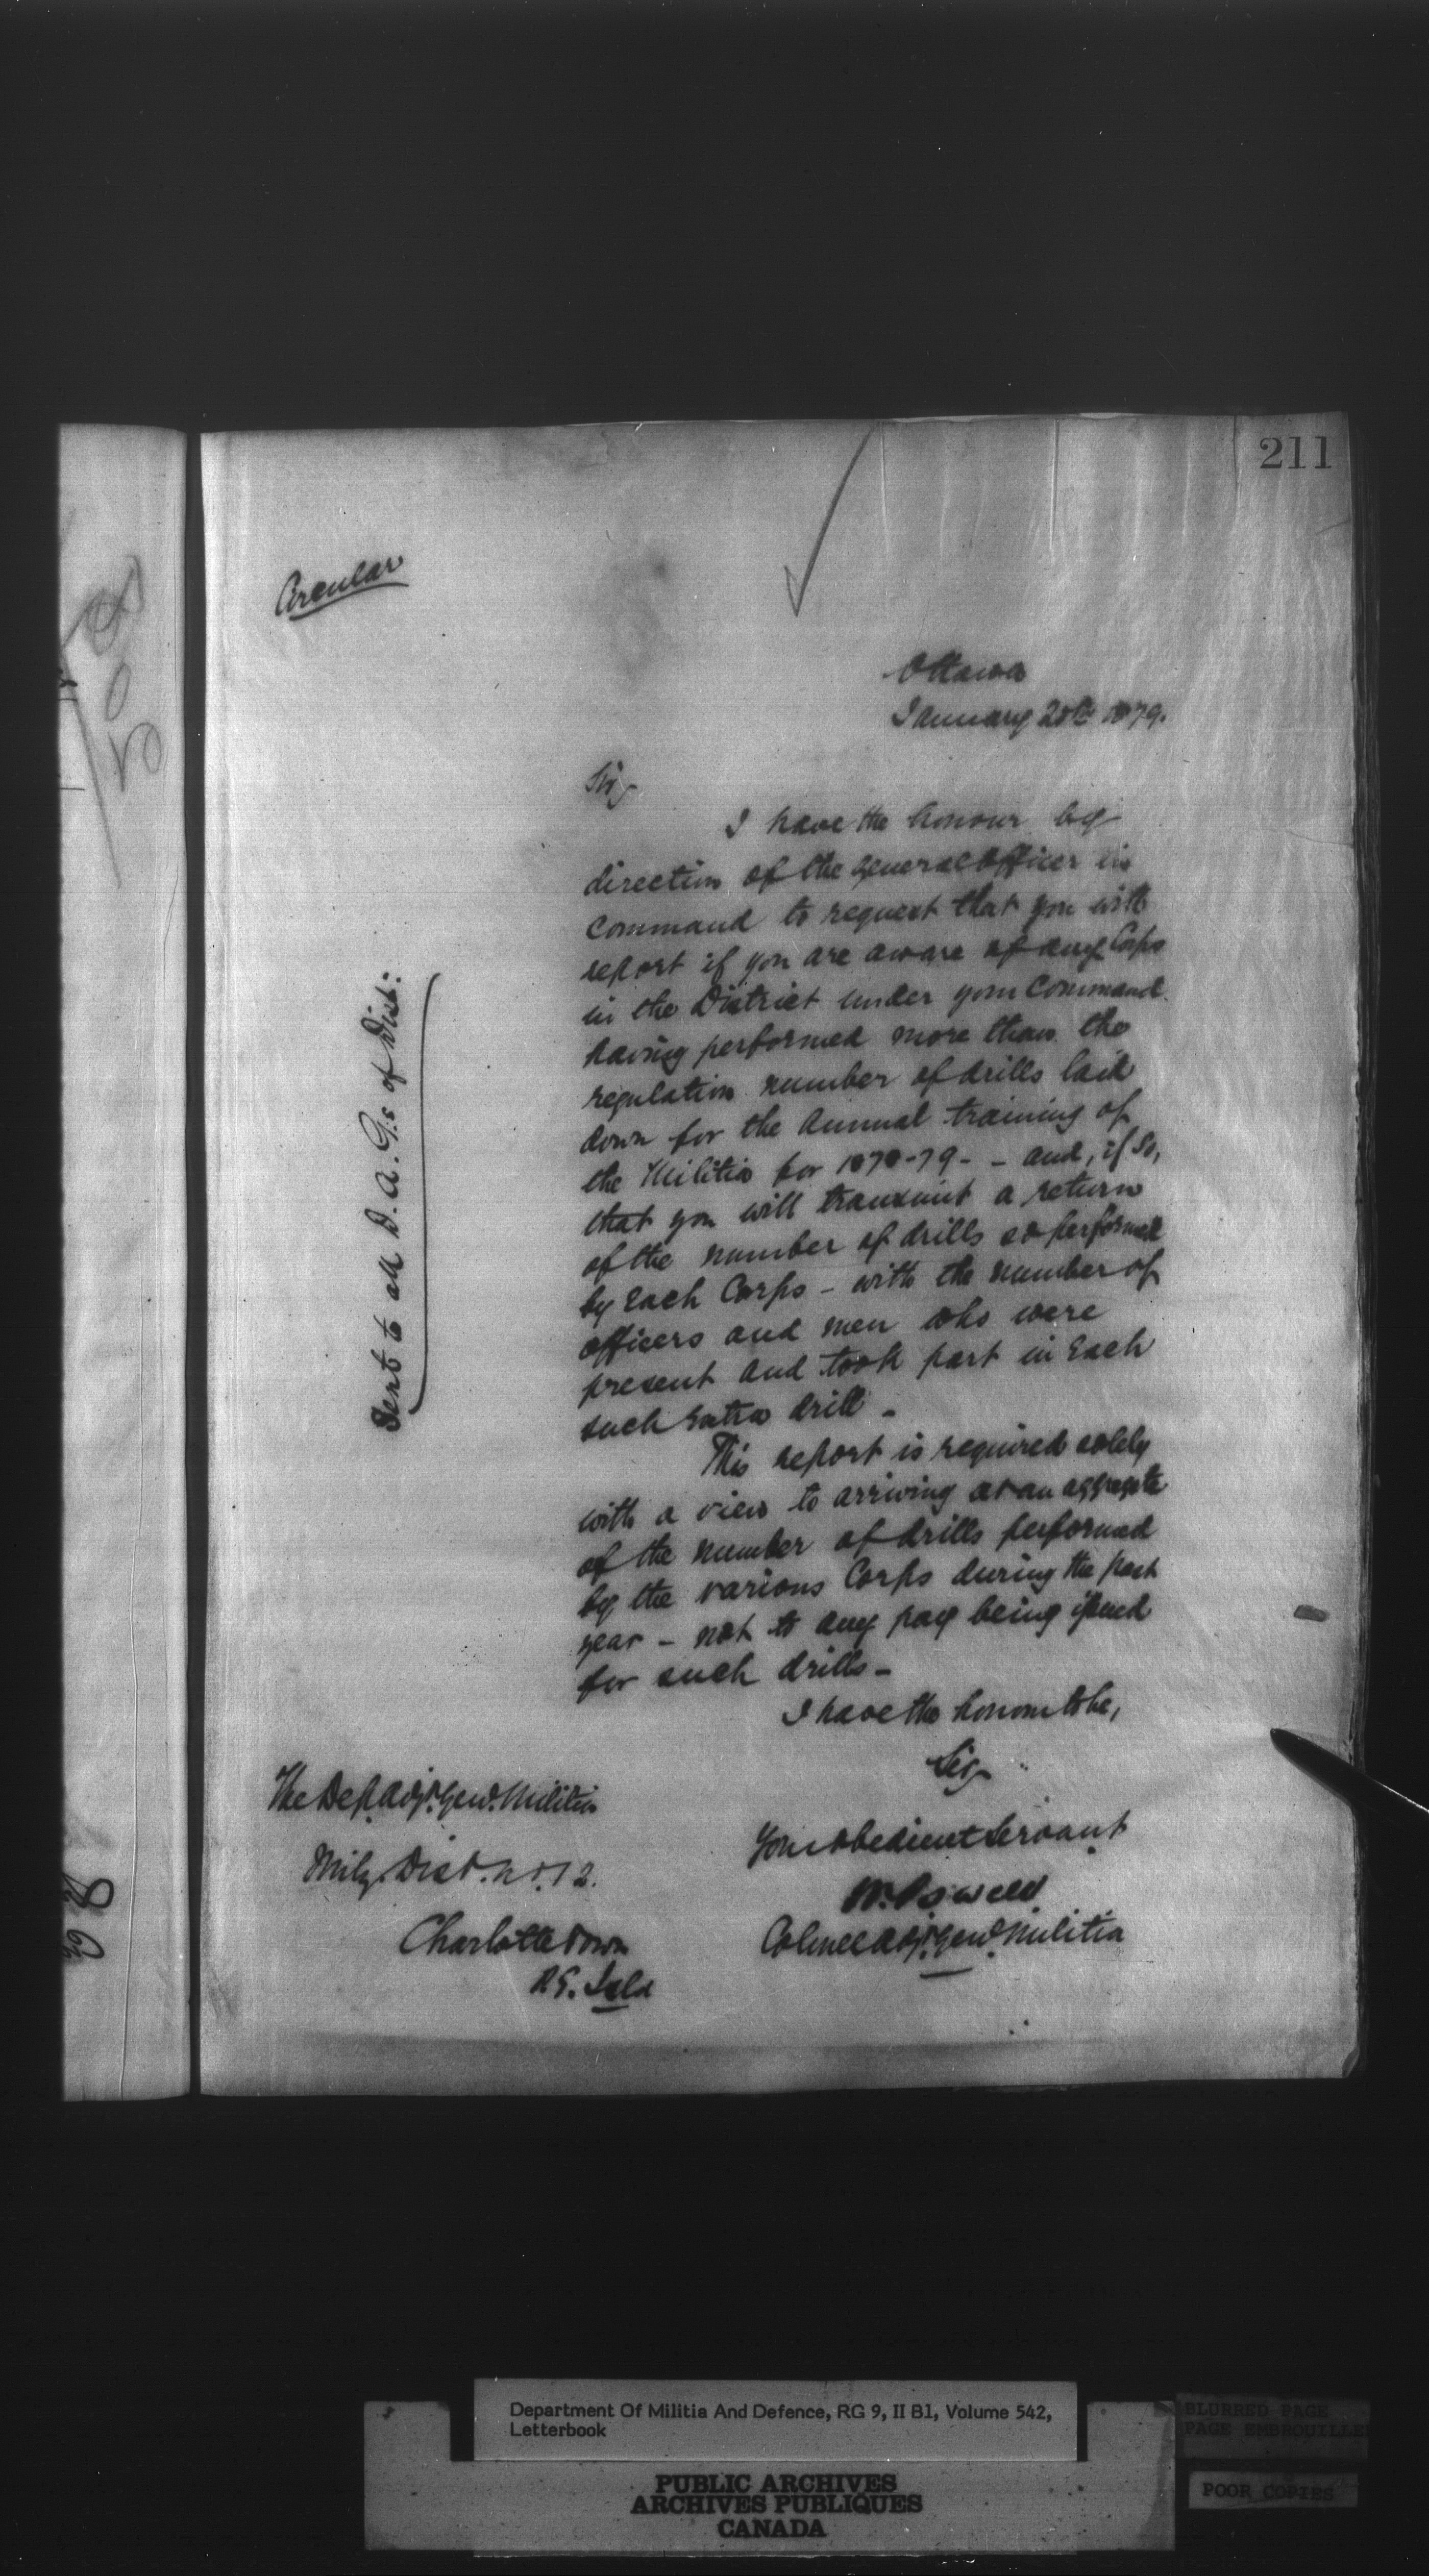 211
Circular
Ottawa
January 20th 1879.
Sir,
I have the honour by
direction of the General Officer in
Command to request that you will
report if you are aware of any Corps
in the District under your Command
having performed more than the
regulation number of drills laid
down for the Annual training of
the Militia for 1878-79 - - and, if so,
that you will transmit a return
of the number of drills so performed
by Each Corps - with the number of
officers and men who were
present and took part in Each
such Extra drill -
This report is required solely
with a view to arriving at an aggregate
of the number of drills performed
by the various Corps during the past
year - not to any pay being issued
for such drills -
I have the honour to be,
Sir,
Your obedient Servant
W. Powell
Colonel Adjt. Genl. Militia
Sent to all D. A. G.s of Dist:
The Dep. Adjt. Genl. Militia
Mily. Dist. No. 12.
Charlottetown
P.E. Isld
Department Of Militia And Defence, RG 9, II B1, Volume 542,
Letterbook
PUBLIC ARCHIVES
ARCHIVES PUBLIQUES
CANADA
BLURRED PAGE
PAGE EMBROUILLE
POOR COPIES